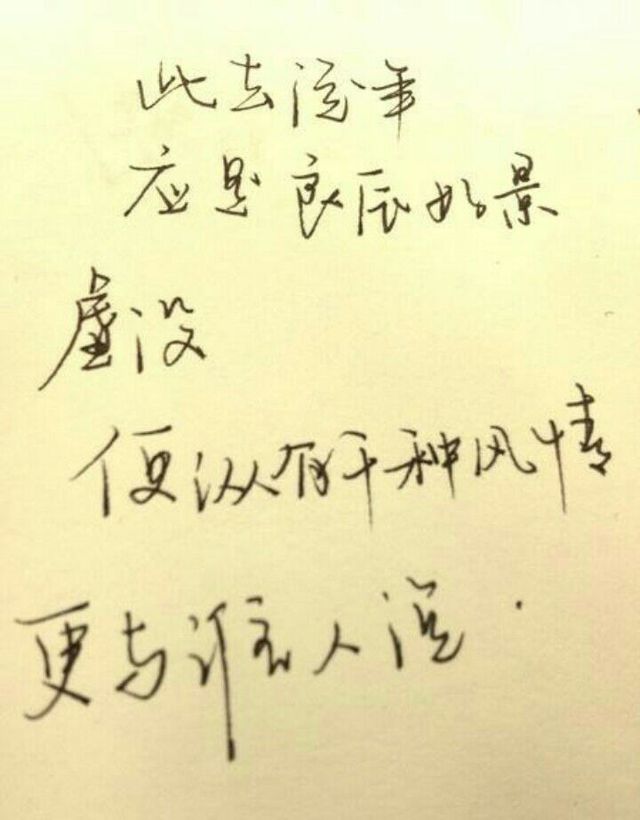 此去经年
应是良辰好景
虚设
便纵有千种风情
更与谁人说.